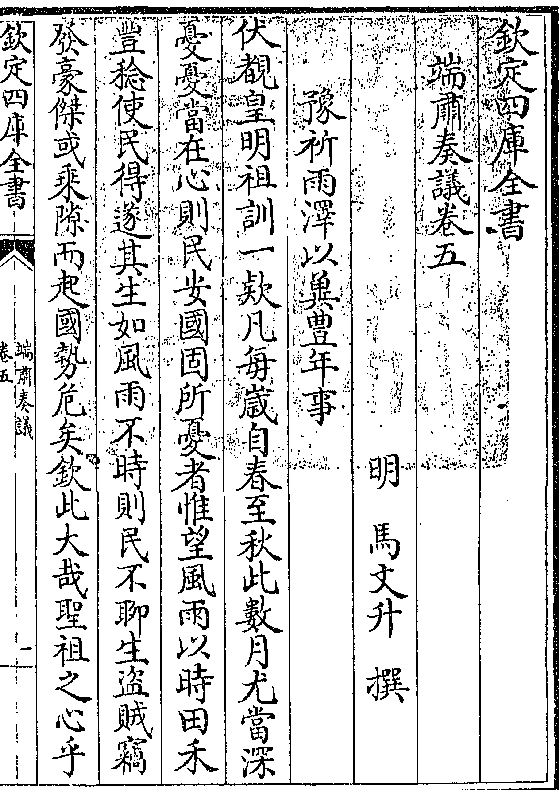 欽定四庫全書
端肅奏議卷五
明　馬文升　撰
豫祈雨澤以冀豐年事
伏覩皇明祖訓一款凡每歲自春至秋此數月尤當深
憂憂當在心則民安國固所憂者惟望風雨以時田禾
豐稔使民得遂其生如風雨不時則民不聊生盜賊竊
發豪傑或乘隙而起國勢危矣欽此大哉聖祖之心乎
欽定四庫全書
端肅奏議
卷五
一